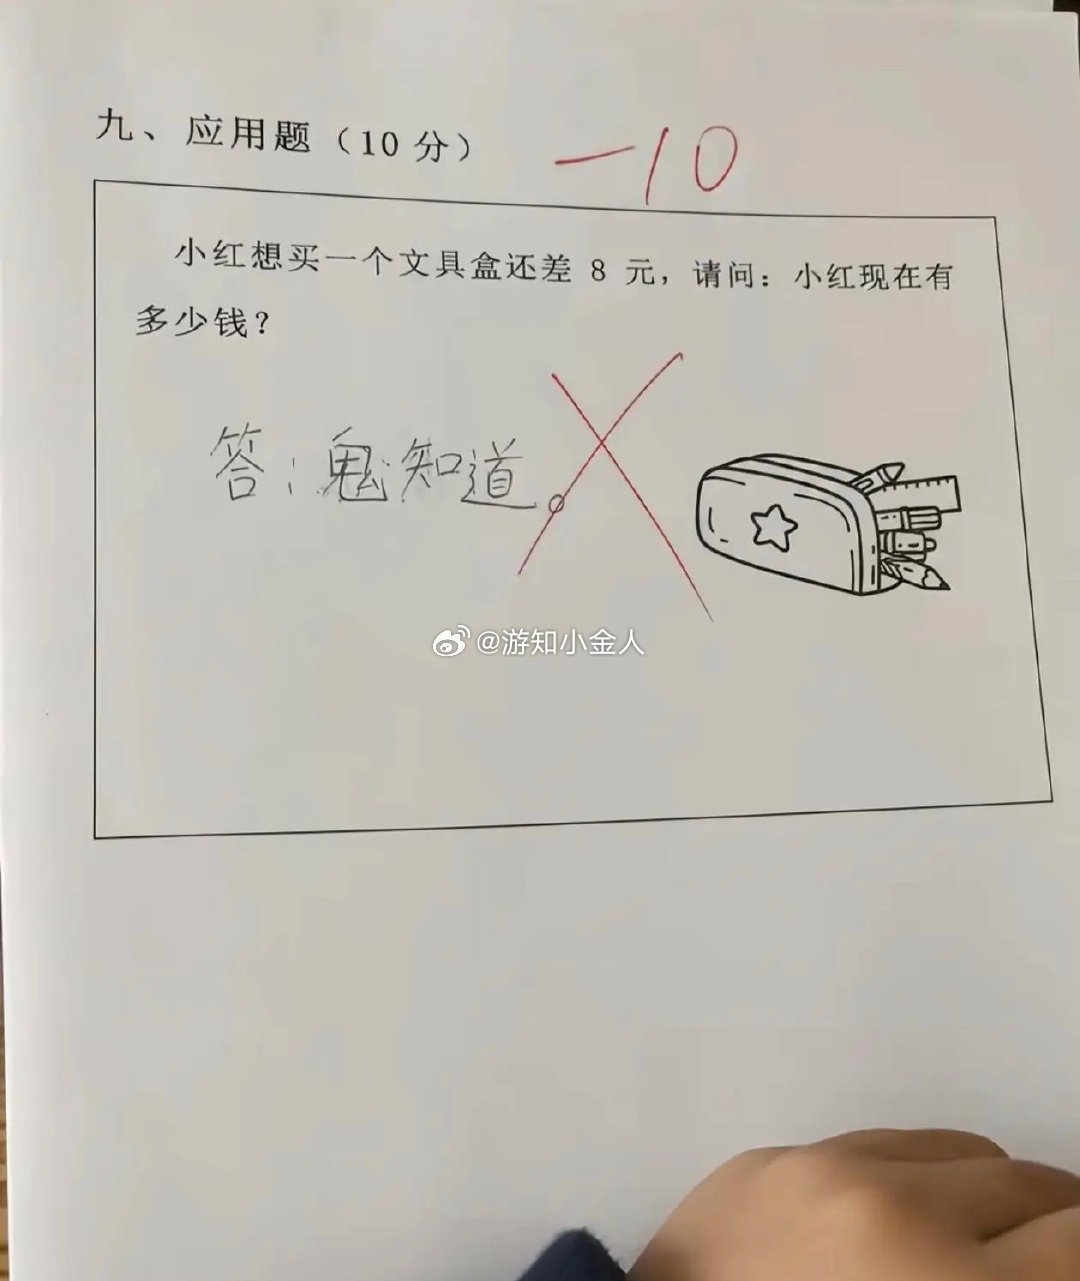 九、应用题（10 分）
-10
小红想买一个文具盒还差 8 元，请问：小红现在有
多少钱？
答：鬼知道。
@游知小金人